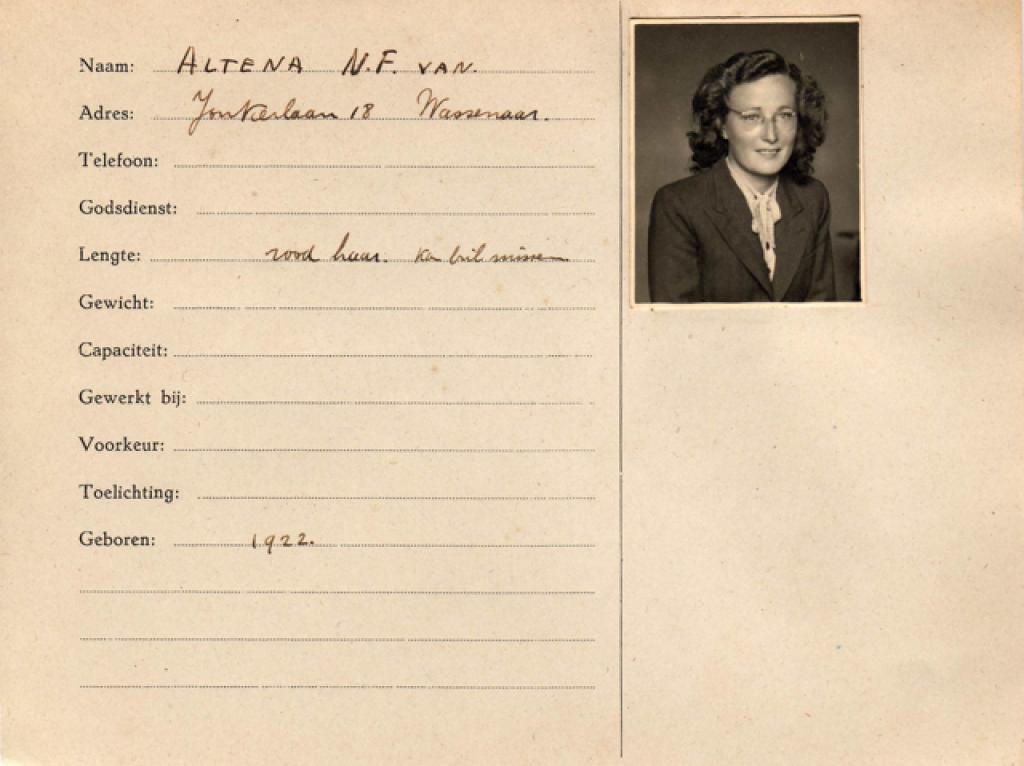 Naam: ALTENA N.F. VAN.
Adres: Jonkerlaan 18 Wassenaar.
Telefoon:
Godsdienst:
Lengte: rood haar. kan bril missen
Gewicht:
Capaciteit:
Gewerkt bij:
Voorkeur:
Toelichting:
Geboren: 1922.